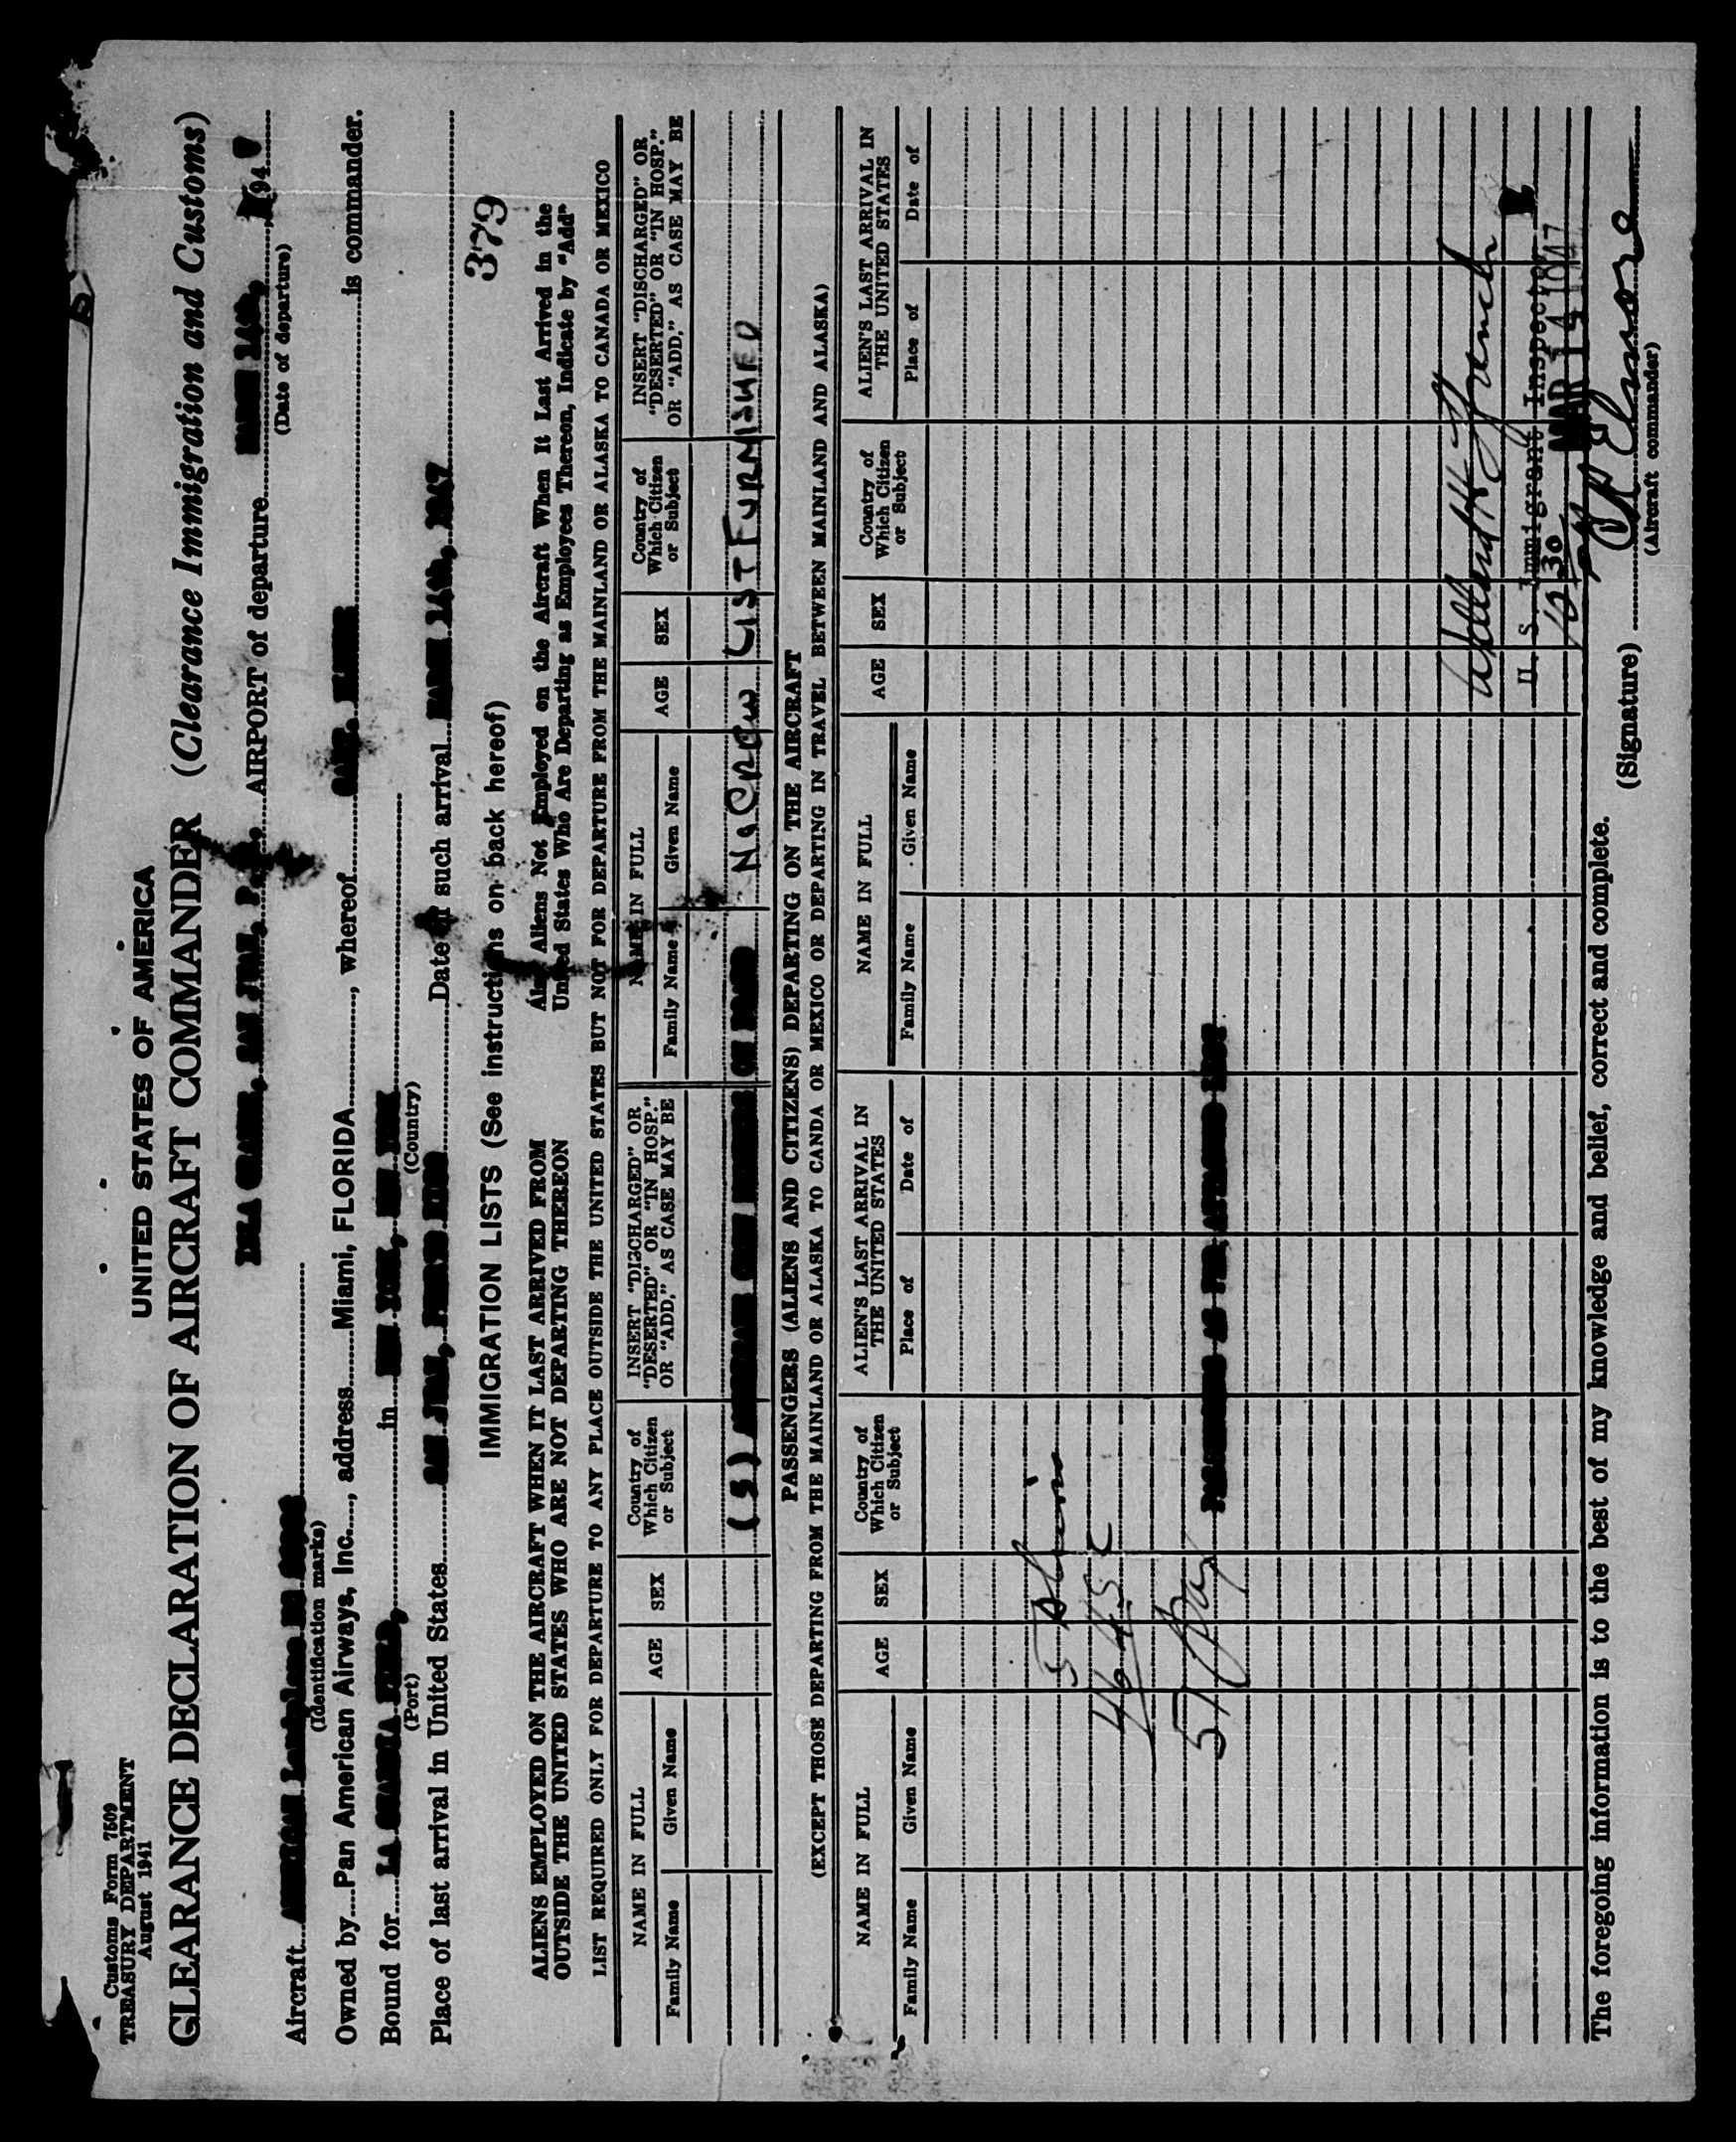 Customs Form 7509
TREASURY DEPARTMENT
August 1941
UNITED STATES OF AMERICA
CLEARANCE DECLARATION OF AIRCRAFT COMMANDER (Clearance Immigration and Customs)
ISLA GRANDE, SAN JUAN, P.R. AIRPORT of departure MARCH 14th, 194
(Date of departure)
Aircraft AMERICAN
(Identification marks)
Owned by Pan American Airways, Inc., address Miami, FLORIDA, whereof CAPT. is commander.
Bound for LA GUARDIA FIELD, in NEW YORK, NEW YORK
(Port) (Country)
Place of last arrival in United States SAN JUAN, PUERTO RICO Date of such arrival MARCH 14th, 1947
379
IMMIGRATION LISTS (See instructions on back hereof)
ALIENS EMPLOYED ON THE AIRCRAFT WHEN IT LAST ARRIVED FROM
OUTSIDE THE UNITED STATES WHO ARE NOT DEPARTING THEREON
Also Aliens Not Employed on the Aircraft When It Last Arrived in the
United States Who Are Departing as Employees Thereon, Indicate by "Add"
LIST REQUIRED ONLY FOR DEPARTURE TO ANY PLACE OUTSIDE THE UNITED STATES BUT NOT FOR DEPARTURE FROM THE MAINLAND OR ALASKA TO CANADA OR MEXICO
NAME IN FULL
Family Name Given Name
AGE
SEX
Country of
Which Citizen
or Subject
INSERT "DISCHARGED" OR
"DESERTED" OR "IN HOSP."
OR "ADD," AS CASE MAY BE
NAME IN FULL
Family Name Given Name
AGE
SEX
Country of
Which Citizen
or Subject
INSERT "DISCHARGED" OR
"DESERTED" OR "IN HOSP."
OR "ADD," AS CASE MAY BE
(5) AMERICAN CREW MEMBERS ON BOARD No CREW LIST FURNISHED
PASSENGERS (ALIENS AND CITIZENS) DEPARTING ON THE AIRCRAFT
(EXCEPT THOSE DEPARTING FROM THE MAINLAND OR ALASKA TO CANDA OR MEXICO OR DEPARTING IN TRAVEL BETWEEN MAINLAND AND ALASKA)
NAME IN FULL
Family Name Given Name
AGE
SEX
Country of
Which Citizen
or Subject
ALIEN'S LAST ARRIVAL IN
THE UNITED STATES
Place of Date of
NAME IN FULL
Family Name Given Name
AGE
SEX
Country of
Which Citizen
or Subject
ALIEN'S LAST ARRIVAL IN
THE UNITED STATES
Place of Date of
5 Alien
46 USC
51 Pax
PASSENGERS AS PER ATTACHED LIST
French
U. S. Immigrant Inspector
10 30 MAR 14 1947
The foregoing information is to the best of my knowledge and belief, correct and complete.
(Signature)
(Aircraft commander)